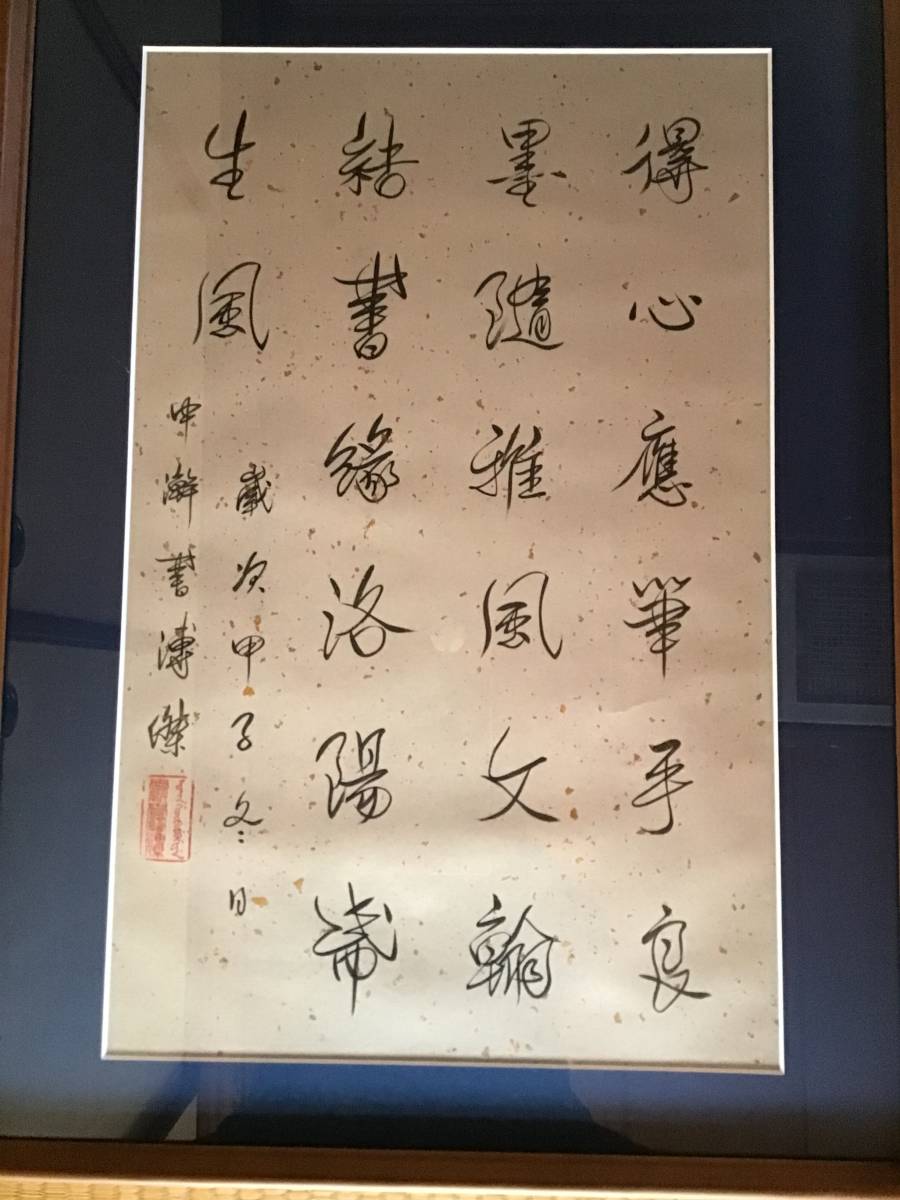 得心應筆手良
墨隨雅風文翰
結書緣洛陽
生風
歲次甲子冬日
中澣書溥傑